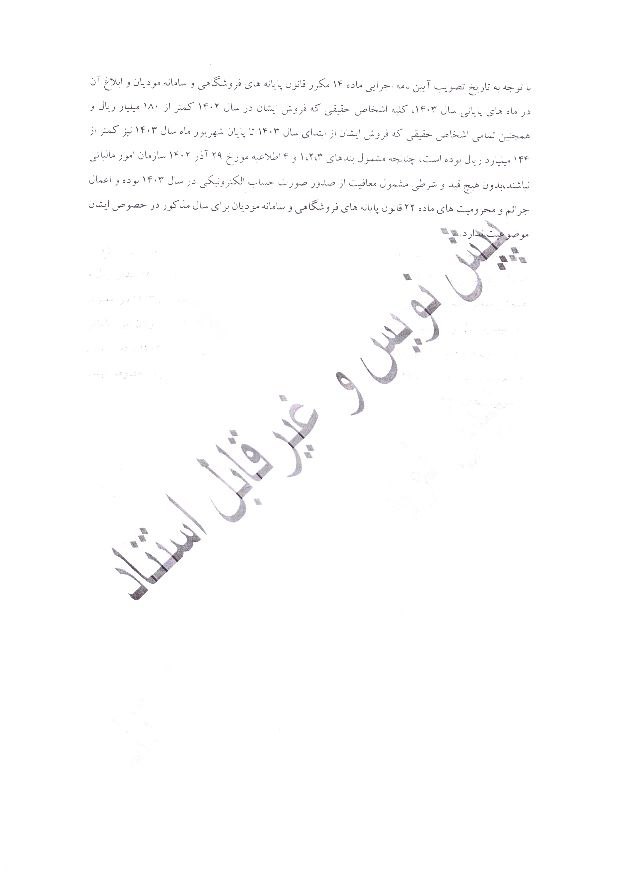 با توجه به تاریخ تصویب آیین نامه اجرایی ماده ۱۴ مکرر قانون پایانه های فروشگاهی و سامانه مودیان و ابلاغ آن
در ماه های پایانی سال ۱۴۰۳، کلیه اشخاص حقیقی که فروش ایشان در سال ۱۴۰۲ کمتر از ۱۸۰ میلیارد ریال و
همچنین تمامی اشخاص حقیقی که فروش ایشان از ابتدای سال ۱۴۰۳ تا پایان شهریور ماه سال ۱۴۰۳ نیز کمتر از
۱۴۴ میلیارد ریال بوده است، چنانچه مشمول بندهای ۱،۲،۳ و ۴ اطلاعیه مورخ ۲۹ آذر ۱۴۰۲ سازمان امور مالیاتی
نباشند،بدون هیچ قید و شرطی مشمول معافیت از صدور صورت حساب الکترونیکی در سال ۱۴۰۳ بوده و اعمال
جرائم و محرومیت های ماده ۲۲ قانون پایانه های فروشگاهی و سامانه مودیان برای سال مذکور در خصوص ایشان
موضوعیت ندارد
پیش نویس و غیر قابل استناد